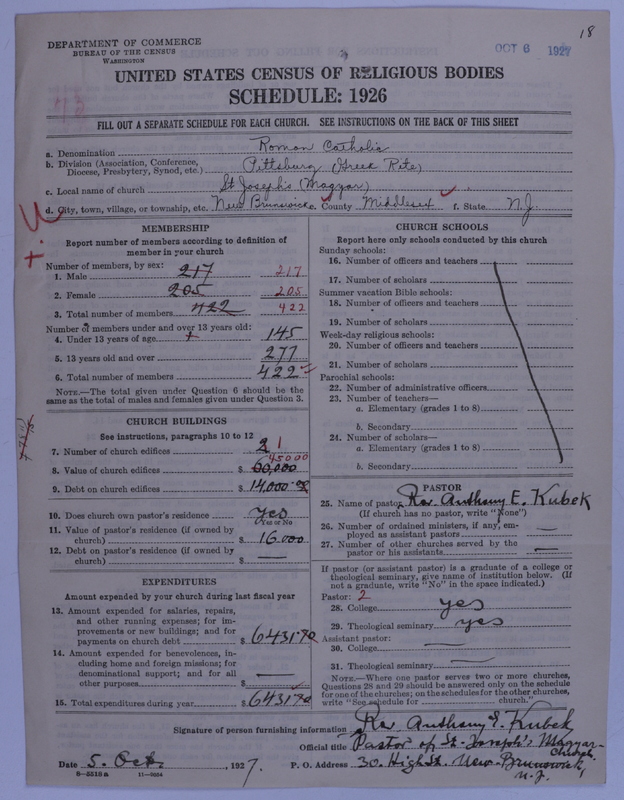 18
DEPARTMENT OF COMMERCE
BUREAU OF THE CENSUS
WASHINGTON
OCT 6 1927
UNITED STATES CENSUS OF RELIGIOUS BODIES
SCHEDULE: 1926
FILL OUT A SEPARATE SCHEDULE FOR EACH CHURCH. SEE INSTRUCTIONS ON THE BACK OF THIS SHEET
a. Denomination Roman Catholic
b. Division (Association, Conference, Diocese, Presbytery, Synod, etc.) Pittsburg (Greek Rite)
c. Local name of church St Joseph's (Magyar)
d. City, town, village, or township, etc. New Brunswick e. County Middlesex f. State N.J.
MEMBERSHIP
Report number of members according to definition of
member in your church
Number of members, by sex:
1. Male 217 217
2. Female 205 205
3. Total number of members 422 422
Number of members under and over 13 years old:
4. Under 13 years of age 145
5. 13 years old and over 277
6. Total number of members 422
NOTE.—The total given under Question 6 should be the
same as the total of males and females given under Question 3.
CHURCH BUILDINGS
See instructions, paragraphs 10 to 12
7. Number of church edifices 2 1
45000
8. Value of church edifices $ 60,000
9. Debt on church edifices $ 14,000
10. Does church own pastor's residence yes
Yes or No
11. Value of pastor's residence (if owned by
church) $ 16.000
12. Debt on pastor's residence (if owned by
church) $ —
EXPENDITURES
Amount expended by your church during last fiscal year
13. Amount expended for salaries, repairs,
and other running expenses; for im-
provements or new buildings; and for
payments on church debt $ 6431.70
14. Amount expended for benevolences, in-
cluding home and foreign missions; for
denominational support; and for all
other purposes $ —
15. Total expenditures during year $ 6431.70
CHURCH SCHOOLS
Report here only schools conducted by this church
Sunday schools:
16. Number of officers and teachers
17. Number of scholars
Summer vacation Bible schools:
18. Number of officers and teachers
19. Number of scholars
Week-day religious schools:
20. Number of officers and teachers
21. Number of scholars
Parochial schools:
22. Number of administrative officers
23. Number of teachers—
a. Elementary (grades 1 to 8)
b. Secondary
24. Number of scholars—
a. Elementary (grades 1 to 8)
b. Secondary
PASTOR
25. Name of pastor Rev. Anthony E. Kubek
(If church has no pastor, write "None")
26. Number of ordained ministers, if any, em-
ployed as assistant pastors —
27. Number of other churches served by the
pastor or his assistants —
If pastor (or assistant pastor) is a graduate of a college or
theological seminary, give name of institution below. (If
not a graduate, write "No" in the space indicated.)
Pastor: 2
28. College yes
29. Theological seminary yes
Assistant pastor:
30. College —
31. Theological seminary —
NOTE.—Where one pastor serves two or more churches,
Questions 28 and 29 should be answered only on the schedule
for one of the churches; on the schedules for the other churches,
write "See schedule for church."
Signature of person furnishing information Rev Anthony E. Kubek
Official title Pastor of St. Joseph's Magyar-Church.
Date 5. Oct., 1927. P. O. Address 30. High St. New-Brunswick, N. J.
8-5518a 11-9864